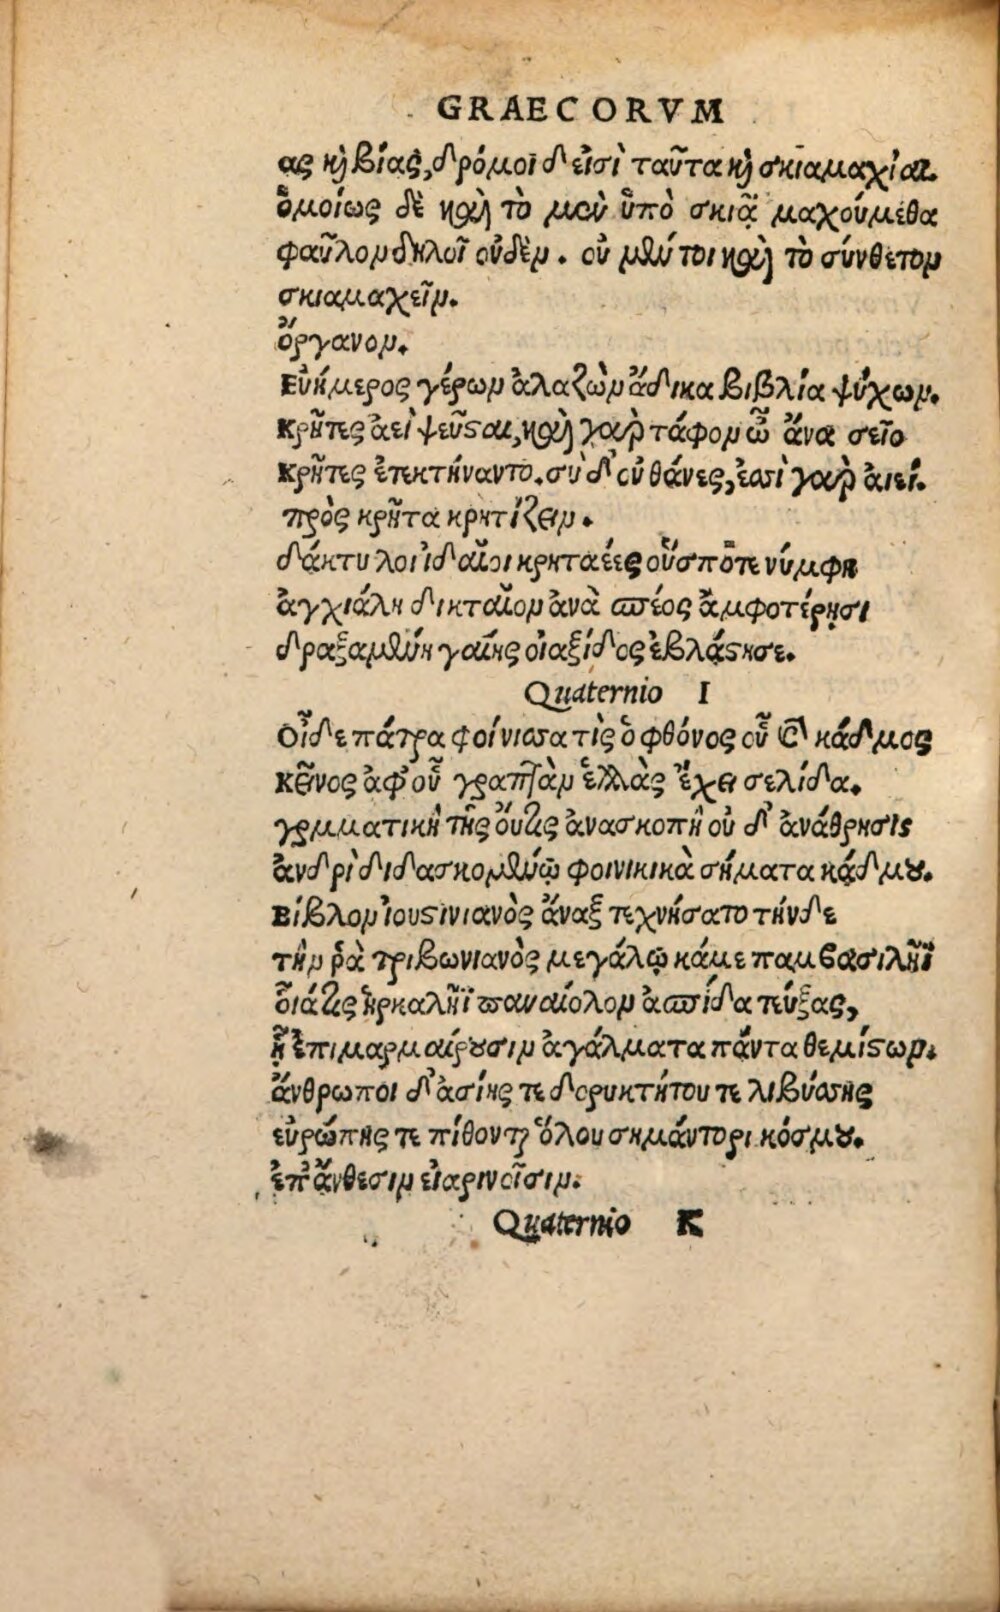 GRAECORVM
ας κὴ βίας, δρόμοι δ'εἰσὶ ταῦτα κὴ σκιαμαχίαι.
ὁμοίως δὲ καὶ τὸ μοὺ ὑπὸ σκιᾷ μαχούμεθα
φαῦλον δηλοῖ οὐδὲν. οὐ μέντοι καὶ τὸ σύνθετον
σκιαμαχεῖν.
ὄργανον.
Εὐήμερος γέρων ἀλαζὼν ἄδικα βιβλία ψύχων.
Κρῆτες ἀεὶ ψεῦσαι, καὶ γὰρ τάφον ὦ ἄνα σεῖο
Κρῆτες ἐπεκτήναντο. σὺ δ' οὐ θάνες, ἐσσὶ γὰρ ἀιεί.
πρὸς κρῆτα κρητίζειν.
δάκτυλοι ἰδαῖοι κρηταέες οὕς ποτε νύμφη
ἀγχιάλη δικταῖον ἀνὰ σπέος ἀμφοτέρῃσι
δραξαμένη γαίης οἰαξίδος ἐβλάστησε.
Quaternio I
Οἶδε πάτρα φοίνισσα τὶς ὁ φθόνος οὗ Ϲ κάδμος
Κεῖνος ἀφ' οὗ γραπτὰν ἑλλὰς ἔχει σελίδα.
γραμματικὴ τῆς οὔτις ἀνασκοπὴ οὐ δ' ἀνάθρησις
ἀνδρὶ διδασκομένῳ φοινικικὰ σήματα κάδμου.
Βίβλον ἰουστινιανὸς ἄναξ τεχνήσατο τήνδε
τὴν ῥὰ τριβωνιανὸς μεγάλῳ κάμε παμβασιλῆϊ
οἷά τις ἡρκαλῆϊ παναίολον ἀσπίδα τεύξας,
ᾗ ἐπιμαρμαίρουσιν ἀγάλματα πάντα θεμίστων.
ἄνθρωποι δ' ἀσίης τε δορυκτήτου τε λιβύσσης
εὐρώπης τε πίθοντι ὅλου σημάντορι κόσμου.
ἐπ' ἄνθεσιν εἰαρινοῖσιν.
Quaternio K